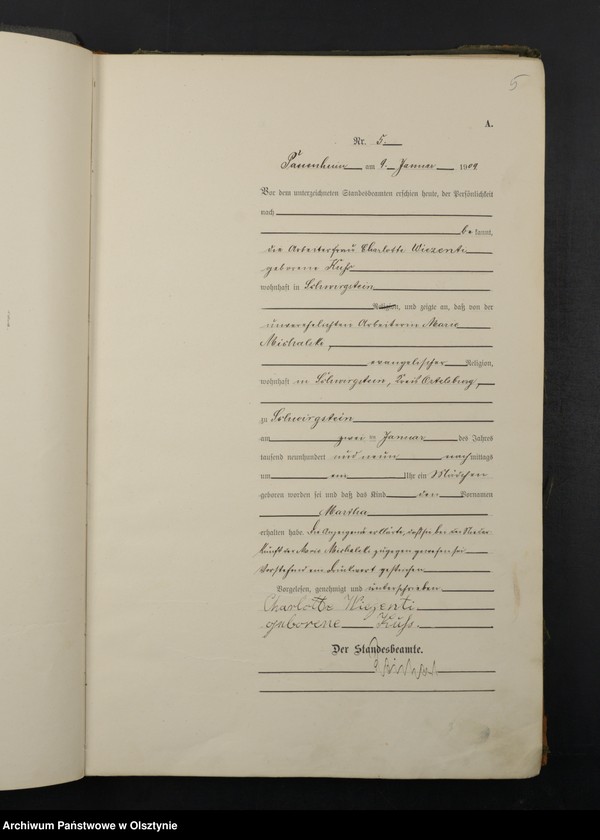 5
A.
Nr. 5.
am 9. Januar 1909
Vor dem unterzeichneten Standesbeamten erschien heute, der Persönlichkeit
nach
be kannt,
die Arbeiterfrau Charlotte Wiezenti
geborene Kuss
wohnhaft in Schwirgstein
Religion, und zeigte an, daß von der
unverehelichten Arbeiterin Marie
Michalski,
evangelischer Religion,
wohnhaft in Schwirgstein, Kreis Ortelsburg,
zu Schwirgstein
am zwei ten Januar des Jahres
tausend neunhundert und neun nach mittags
um ein Uhr ein Mädchen
geboren worden sei und daß das Kind den Vornamen
Martha
erhalten habe. Die Anzeigende erklärte, daß sie bei der Nieder
kunft der Marie Michalski zugegen gewesen sei
Vorstehend ein Druckwort gestrichen
Vorgelesen, genehmigt und unterschrieben
Charlotte Wiezenti
geborene Kuss
Der Standesbeamte.
Archiwum Państwowe w Olsztynie